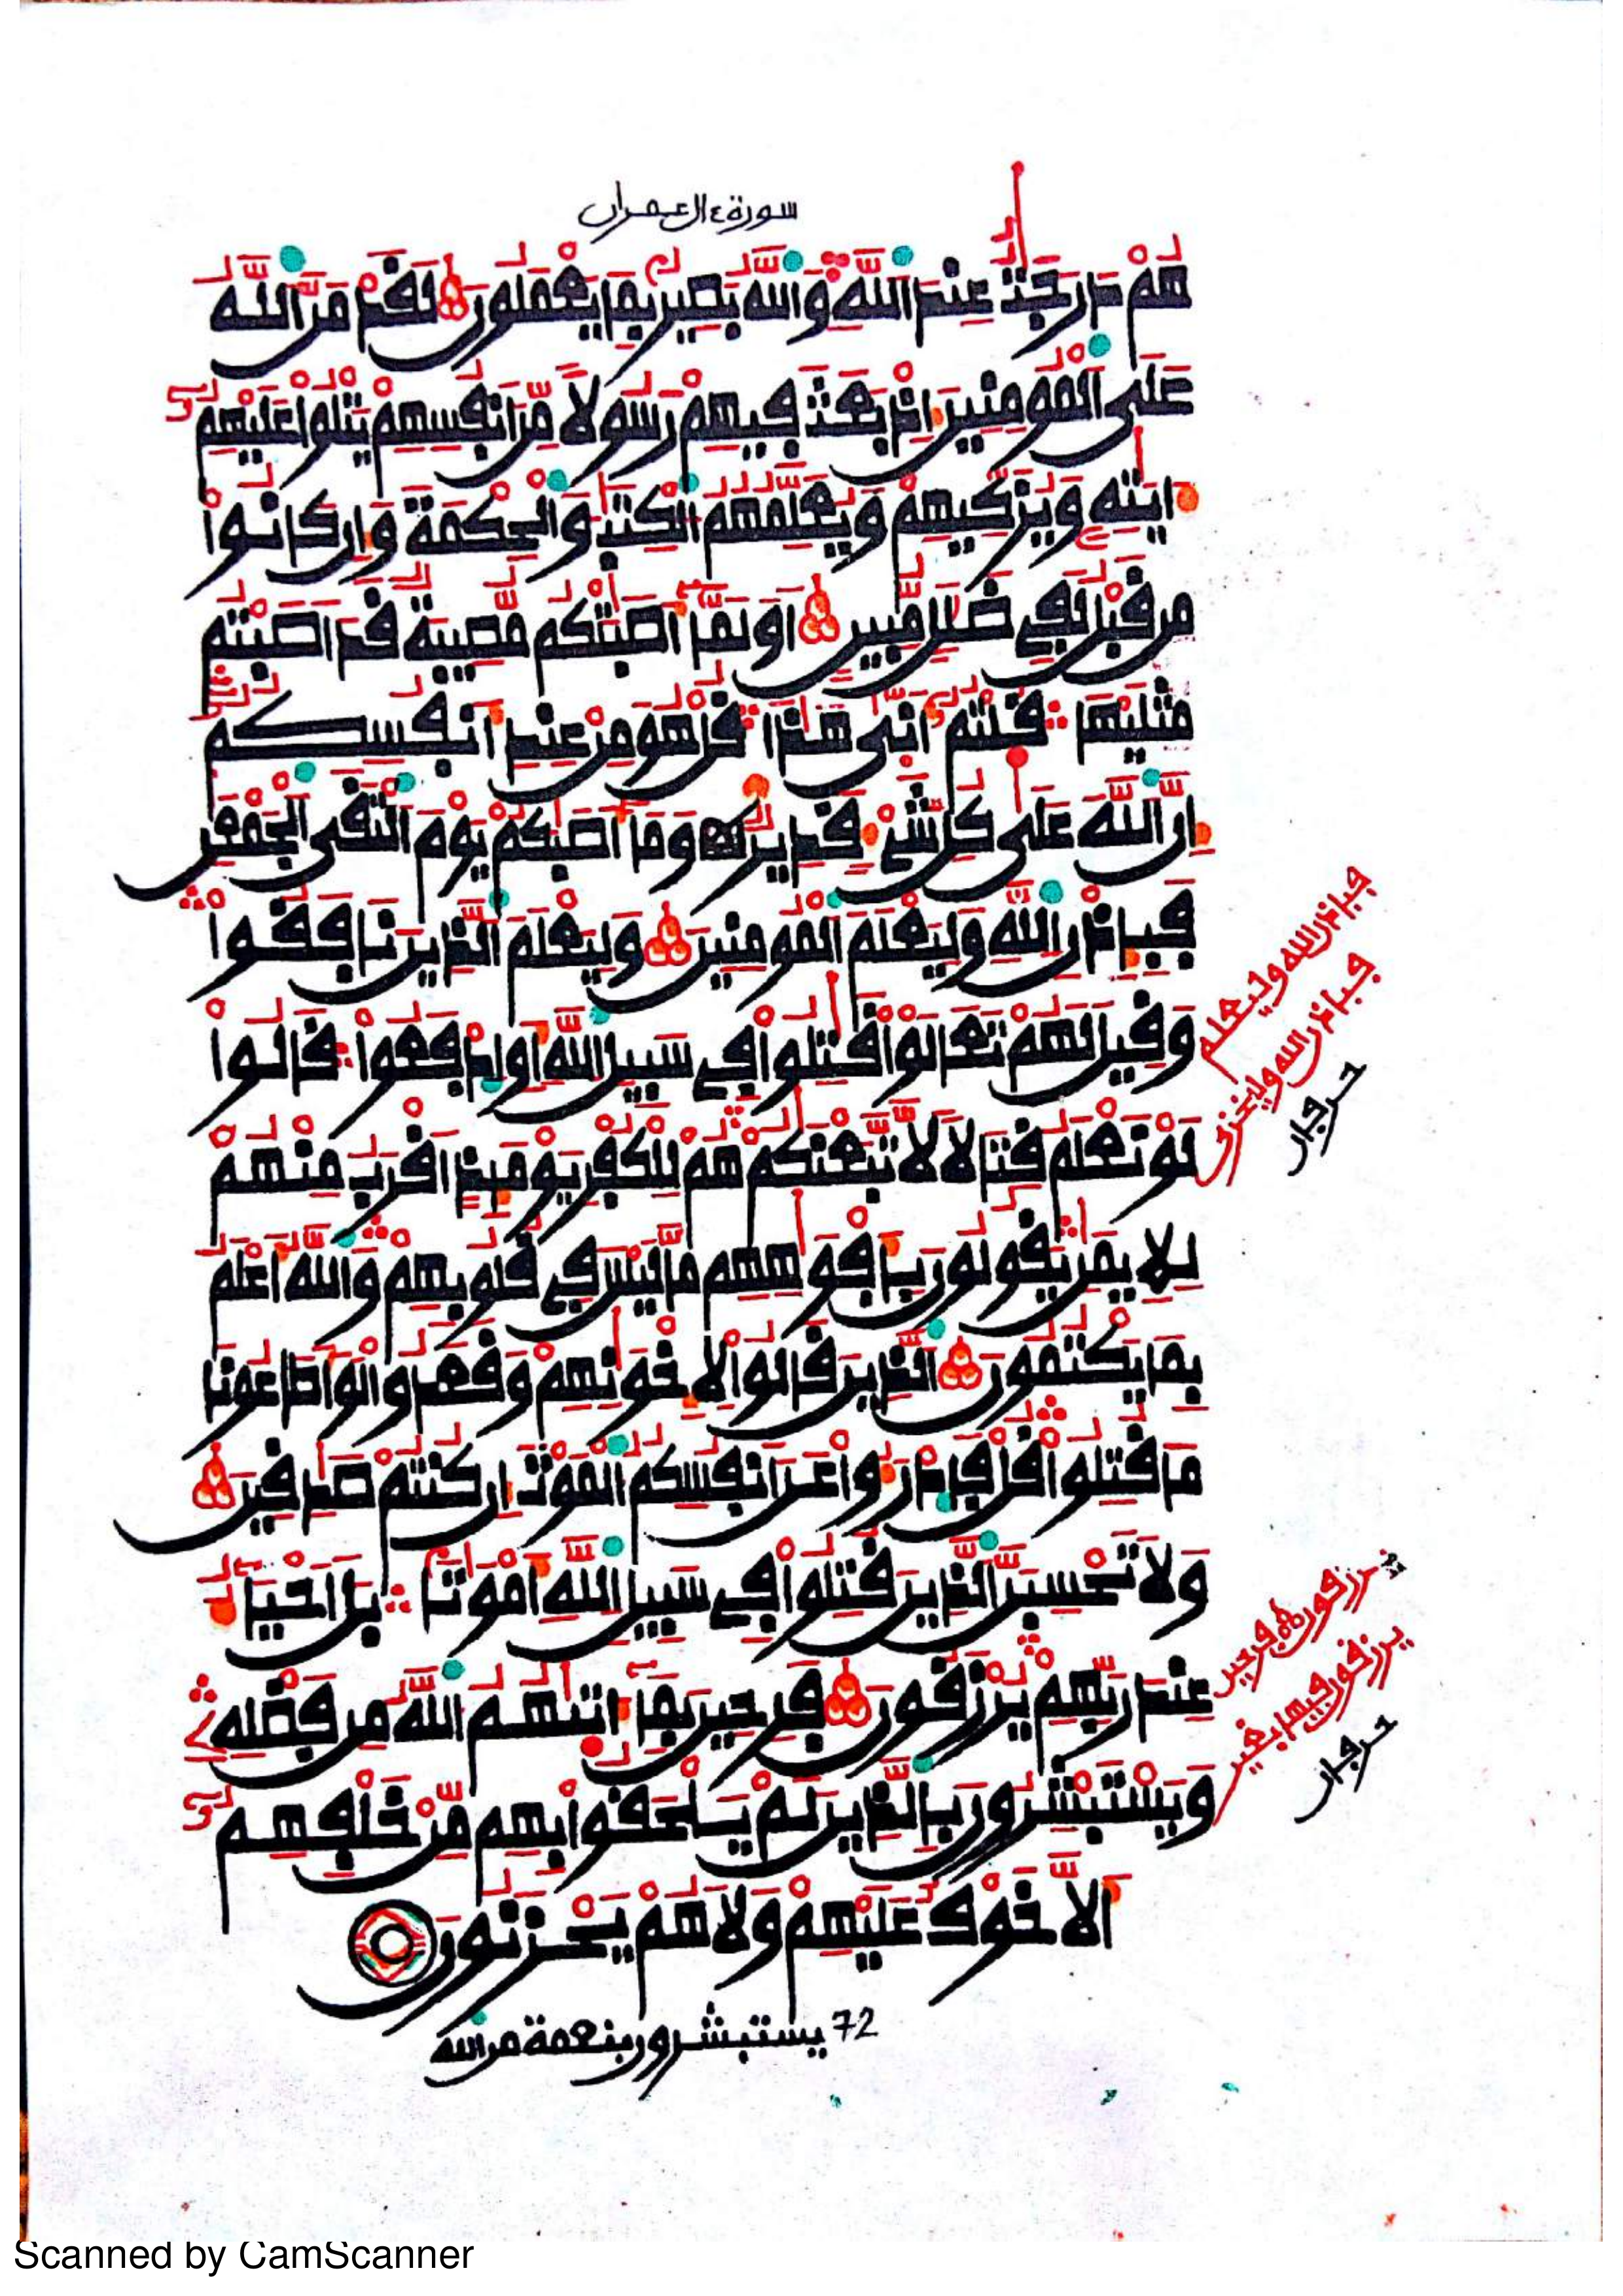 سورة ءال عمران
هُمْ دَرَجَٰتٌ عِندَ اَللَّهِ وَاللَّهُ بَصِيرٌ بِمَا يَعْمَلُونَ لَقَدْ مَنَّ اَللَّهُ
عَلَى اَلْمُومِنِينَ إِذْ بَعَثَ فِيهِمْ رَسُولًا مِّنَ اَنفُسِهِمْ يَتْلُوا عَلَيْهِمُ
ءَايَٰتِهِ وَيُزَكِّيهِمْ وَيُعَلِّمُهُمُ اُلْكِتَٰبَ وَالْحِكْمَةَ وَإِن كَانُواْ
مِن قَبْلُ لَفِي ضَلَٰلٍ مُّبِينٍ أَوَلَمَّا أَصَٰبَتْكُم مُّصِيبَةٌ قَدَ اَصَبْتُم
مِّثْلَيْهَا قُلْتُمُ أَنَّىٰ هَٰذَا قُلْ هُوَ مِنْ عِندِ أَنفُسِكُمُ
إِنَّ اَللَّهَ عَلَىٰ كُلِّ شَيْءٍ قَدِيرٌ وَمَا أَصَٰبَكُمْ يَوْمَ اَلْتَقَى اَلْجَمْعَٰنِ
فَبِإِذْنِ اِللَّهِ وَلِيَعْلَمَ اَلْمُومِنِينَ وَلِيَعْلَمَ اَلذِينَ نَافَقُواْ
وَقِيلَ لَهُمْ تَعَالَوْاْ قَٰتِلُواْ فِي سَبِيلِ اِللَّهِ أَوِ اِدْفَعُواْ قَالُواْ
لَوْ نَعْلَمُ قِتَالًا لَّاتَّبَعْنَٰكُمْ هُمْ لِلْكُفْرِ يَوْمَئِذٍ اَقْرَبُ مِنْهُمْ
لِلْإِيمَٰنِ يَقُولُونَ بِأَفْوَٰهِهِم مَّا لَيْسَ فِي قُلُوبِهِمْ وَاللَّهُ أَعْلَمُ
بِمَا يَكْتُمُونَ اَلذِينَ قَالُواْ لِإِخْوَٰنِهِمْ وَقَعَدُواْ لَوَ اَطَاعُونَا
مَا قُتِلُواْ قُلْ فَادْرَءُواْ عَنَ اَنفُسِكُمُ اُلْمَوْتَ إِن كُنتُمْ صَٰدِقِينَ
وَلَا تَحْسِبَنَّ اَلذِينَ قُتِلُواْ فِي سَبِيلِ اِللَّهِ أَمْوَٰتًا بَلَ اَحْيَاءٌ
عِندَ رَبِّهِمْ يُرْزَقُونَ فَرِحِينَ بِمَا ءَاتَىٰهُمُ اُللَّهُ مِن فَضْلِهِ
وَيَسْتَبْشِرُونَ بِالذِينَ لَمْ يَلْحَقُواْ بِهِم مِّنْ خَلْفِهِمُ
أَلَّا خَوْفٌ عَلَيْهِمْ وَلَا هُمْ يَحْزَنُونَ
72 يستبشرون بنعمة من الله
فبإذن الله وليعلم
فبإذن الله وليخزي
حرفان
يرزقون فرحين
يرزقون فيها بغير
حرفان
Scanned by CamScanner